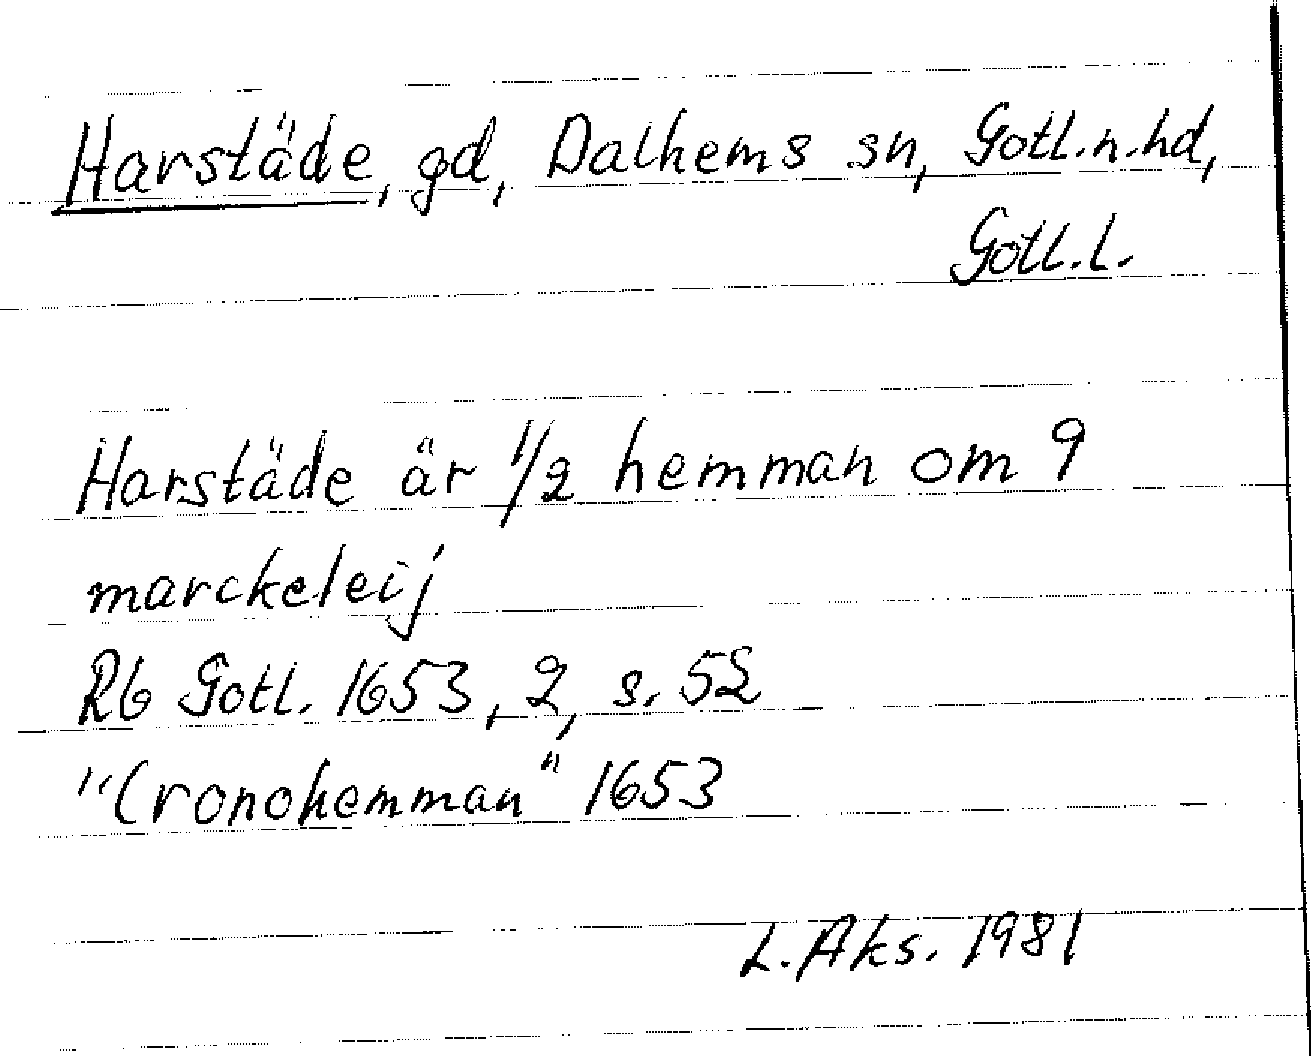 Harstäde, gd, Dalhems sn, Gotl.n.hd,
Gotl.l.
Harstäde är 1/2 hemman om 9
marckeleij
Rb Gotl. 1653, 2, s. 52
"Cronohemman" 1653
L. Aks. 1981